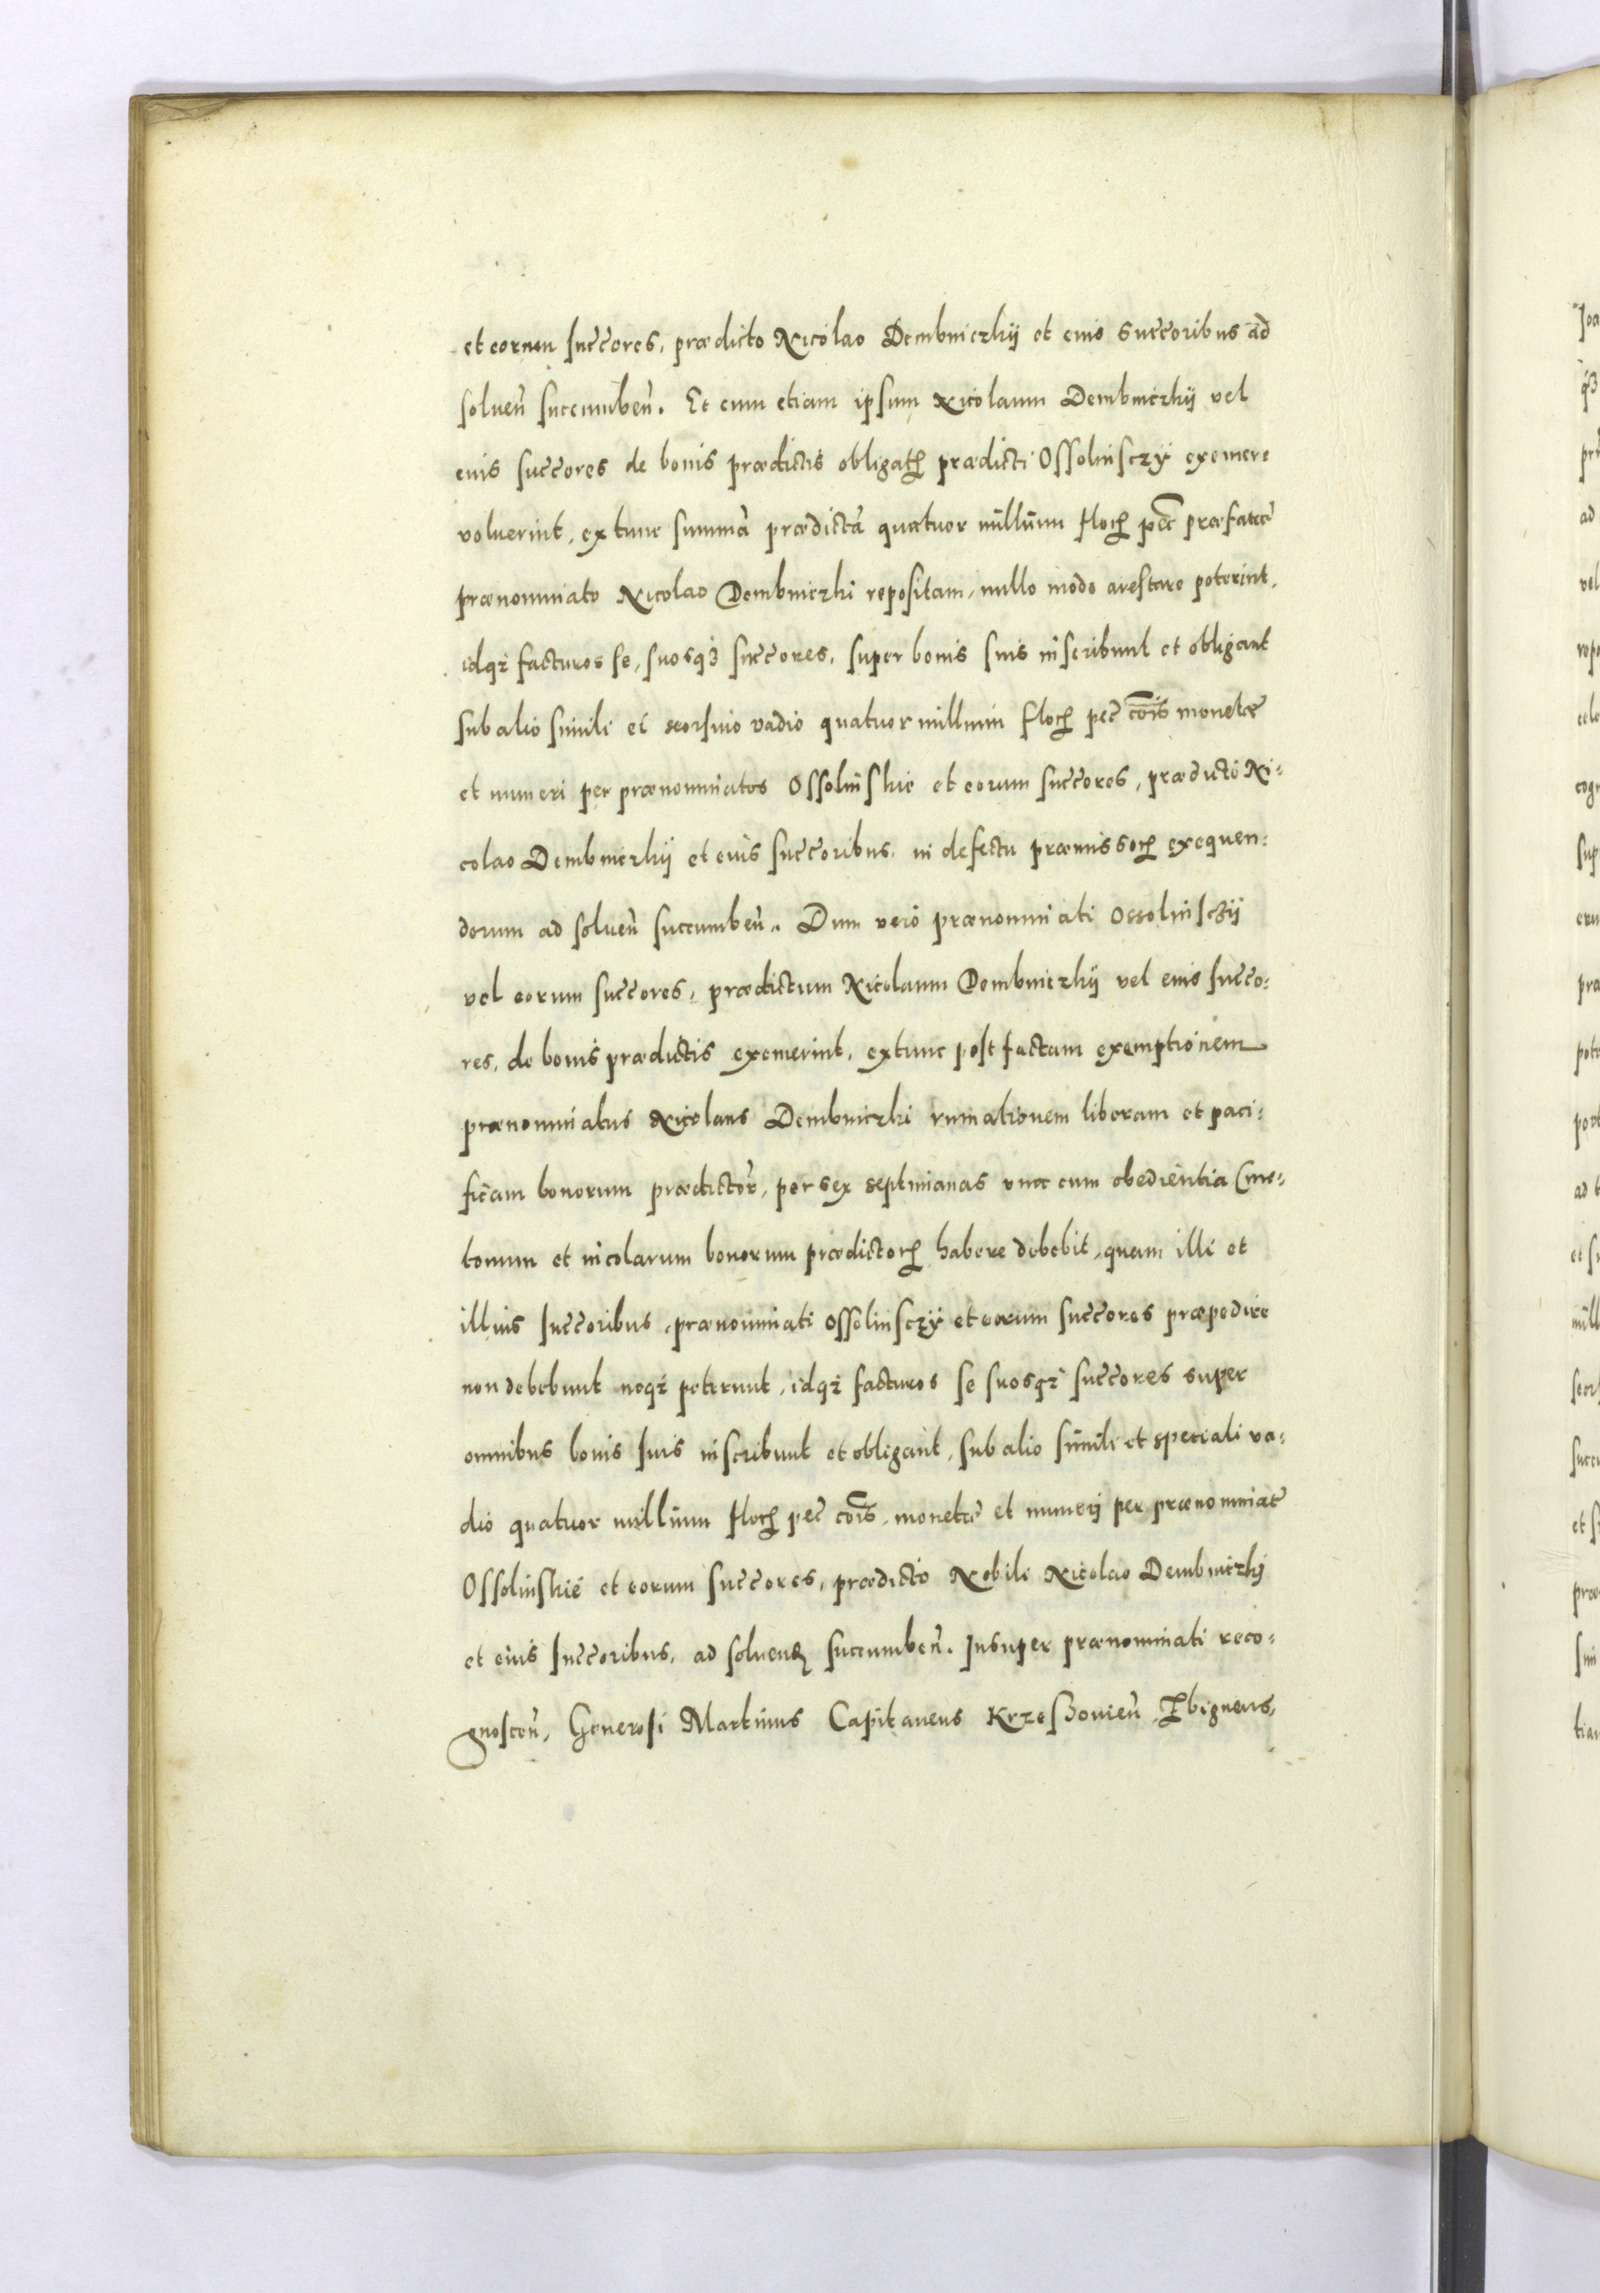 et eorum succores, prædicto Nicolao Dembniczkij et eius succoribus ad
soluen̄ succumben̄. Et cum etiam ipsum Nicolaum Dembniczkij vel
eius succores de bonis prædictis obligatꝝ prædicti Ossolinsczÿ exemere
voluerint, ex tunc summā prædictā quatuor millium floꝝ pec̄ præfatæ
prænominato Nicolao Dembniczki repositam, nullo modo arestare poterint,
idqꝫ facturos se, suosqꝫ succores, super bonis suis inscribunt et obligant
sub alio simili et seorsiuo vadio quatuor millium floꝝ pec̄ cōis monetæ
et numeri per prænominatos Ossolinskie et eorum succores, prædicto Ni-
colao Dembniczkij et eius succoribus, in defectu præmissoꝝ exequen-
dorum ad soluen̄ succumben̄. Dum vero prænominati Ossolinsczij
vel eorum succores, prædictum Nicolaum Dembniczkij vel eius succo-
res, de bonis prædictis exemerint, extunc post factam exemptionem
prænominatus Nicolaus Dembniczki rumationem liberam et paci-
ficam bonorum prædictor̄, per sex septimanas vna cum obedientia Cme-
tonum et incolarum bonorum prædictoꝝ habere debebit, quam illi et
illius succoribus, prænominati Ossolinsczÿ et eorum succores præpedire
non debebunt neqꝫ poterunt, idqꝫ facturos se suosqꝫ succores super
omnibus bonis suis inscribunt et obligant, sub alio simili et speciali va-
dio quatuor millium floꝝ pec̄ cōis, monetæ et numerj per prænominat̄
Ossolinskie et eorum succores, prædicto Nobili Nicolao Dembniczkj
et eius succoribus, ad soluen̄ succumben̄. Insuper prænominati reco-
gnoscen̄, Generosi Martinus Capitaneus Krzeszouien̄ Zbigneus,